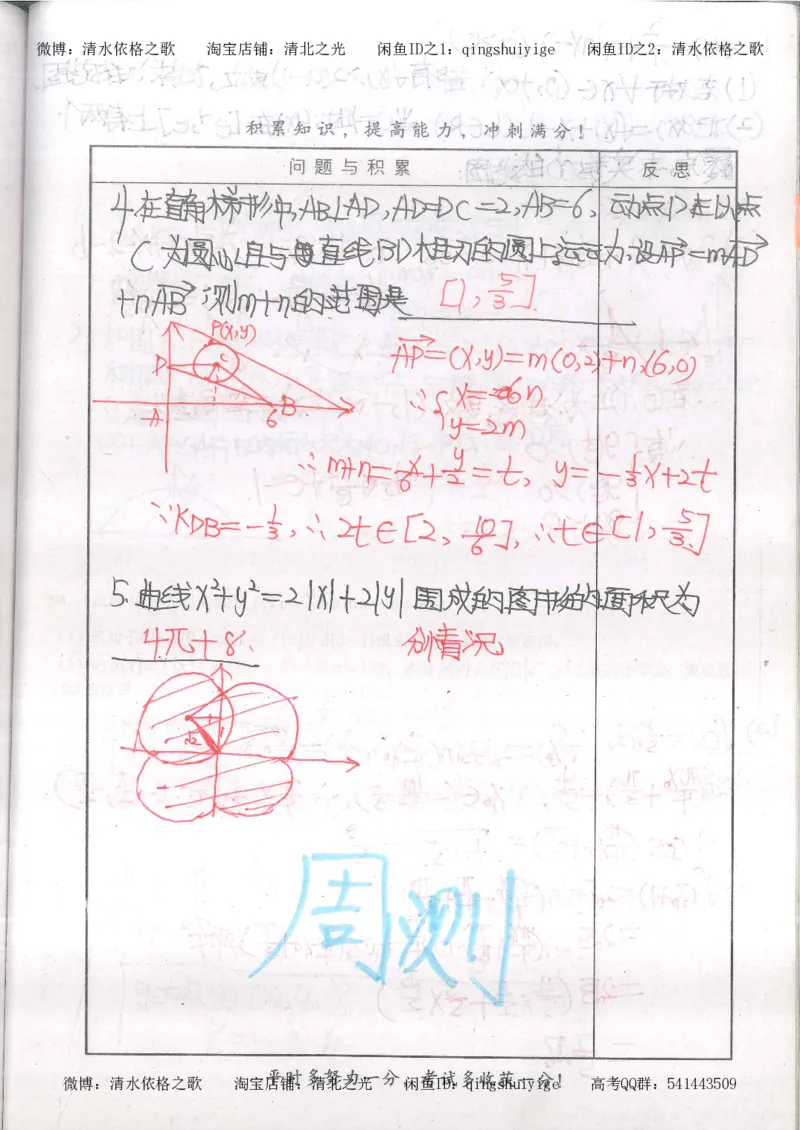 微博：清水依格之歌 淘宝店铺：清北之光 闲鱼ID之1：qingshuiyige 闲鱼ID之2：清水依格之歌
积累知识，提高能力，冲刺满分！
问题与积累 反思
4.在直角梯形中,AB⊥AD,AD=DC=2,AB=6,动点P在以点
C为圆心,且与直线BD相切的圆上运动,设AP=mAD
+nAB,则m+n的范围是 [1,5/3]
P(x,y)
D C
A 6 B
AP=(x,y)=m(0,2)+n(6,0)
∴{x=6n
y=2m
∴m+n=x/6+y/2=t, y=-1/3x+2t
∵KDB=-1/3,∴2t∈[2,10/6],∴t∈[1,5/3]
5.曲线x²+y²=2|x|+2|y|围成的图形的面积为
4π+8 分情况
√2
周测
平时多努力一分，考试多收获一分！
微博：清水依格之歌 淘宝店铺：清北之光 闲鱼ID：qingshuiyige 高考QQ群：541443509